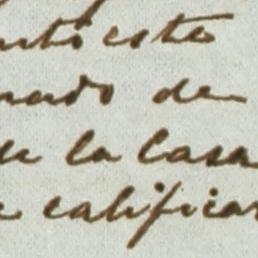 este
nado de
de la casa
calificar